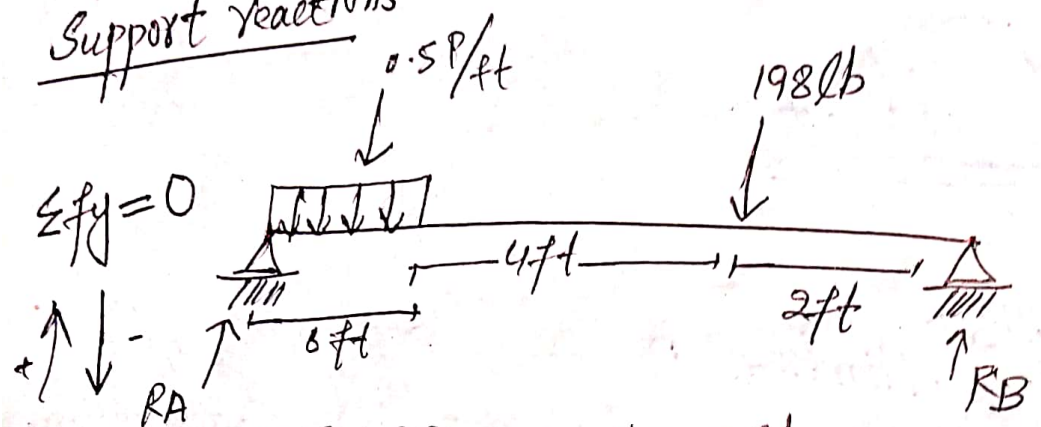 Support reactions
0.5P/ft
198lb
Σfy=0
4ft
2ft
+
-
RA
RB